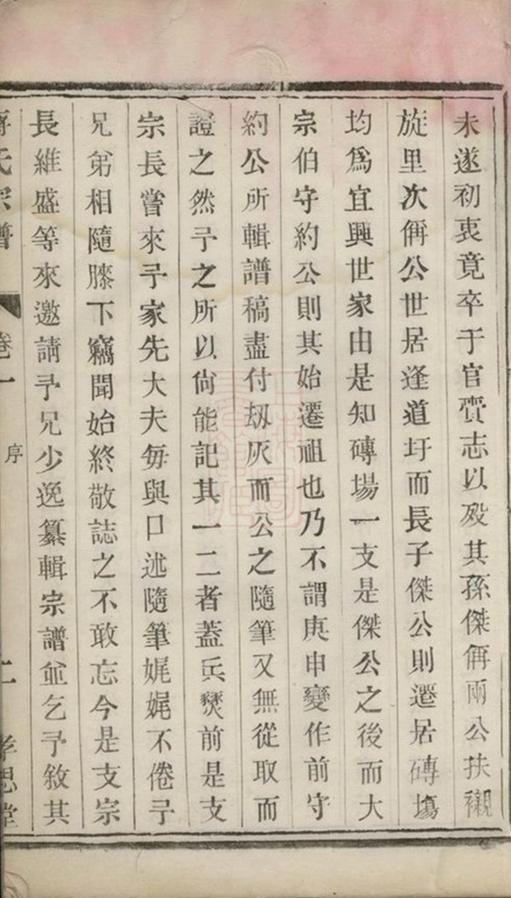 未遂初衷竟卒于官賫志以歿其孫傑俩兩公扶櫬
旋里次俩公世居逢道圩而長子傑公則遷居磚塲
均爲宜興世家由是知磚場一支是傑公之後而大
宗伯守約公則其始遷祖也乃不謂庚申變作前守
約公所輯譜稿盡付刼灰而公之隨筆又無從取而
證之然予之所以尙能記其一二者蓋兵燹前是支
宗長嘗來予家先大夫每與口述隨筆娓娓不倦予
兄弟相隨膝下竊聞始終敬誌之不敢忘今是支宗
長維盛等來邀請予兄少逸纂輯宗譜並乞予敘其
氏宗譜
卷一
序
二
孝思堂